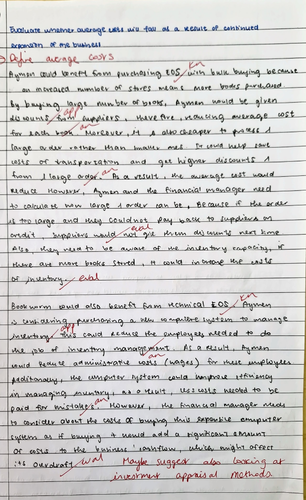 Evaluate whether average costs will fall as a result of continued
expansion of the business
Define average costs
Aymen could benefit from purchasing EOS, with bulk buying because Kn
an increased number of stores means more books purchased
by buying large number of books, Aymen would be given
discounts from suppliers, therefore reducing average cost app
for each book. Moreover, it is also cheaper to process 1 an
large order rather than smaller ones. It could help save
costs of transportation and get higher discounts 1
from 1 large order. As a result, the average cost would an
reduce. However, Aymen and the financial manager need
to calculate how large 1 order can be, because if the order
is too large and they could not pay back to suppliers on
credit, suppliers would not give them discounts next time eval
Also they need to be aware of the inventory capacity, if
there are more books stored, it could increase the costs
of inventory. eval
Bookworm could also benefit from technical EOS. Aymen Kn
is considering purchasing a new computer system to manage
inventory. This could reduce the employees needed to do app
the job of inventory management. As a result, Aymen
could reduce administrative costs (wages) for these employees an
Additionally, the computer system could improve efficiency
in managing inventory, as a result, less costs needed to be
paid for mistakes. However, the financial manager needs an
to consider about the costs of buying this expensive computer
system as if buying it would add a significant amount
of costs to the business' cashflow, which might affect
its overdraft eval Maybe suggest also looking at
investment appraisal methods